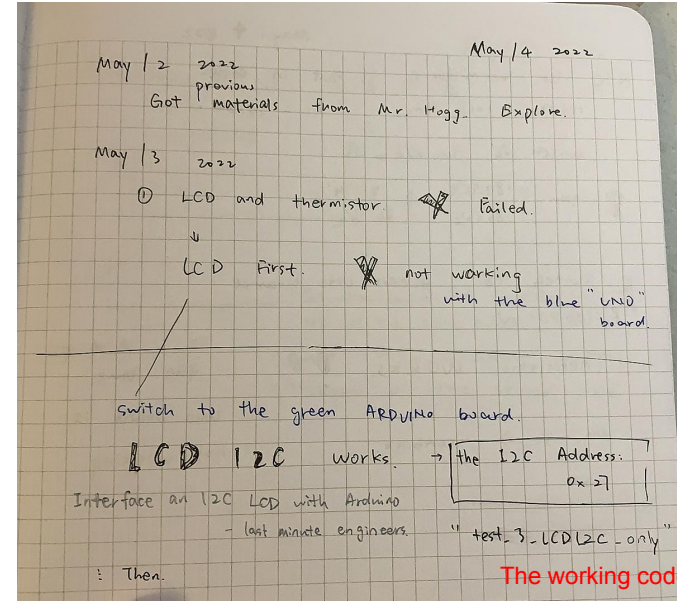 May / 4 2022
May / 2 2022
previous
Got materials from Mr. Hogg. Explore.
May / 3 2022
① LCD and thermistor Failed.
↓
LCD First. X not working
with the blue "UNO"
board.
switch to the green ARDUINO board.
LCD I2C works. → the I2C Address:
0x27
Interface an I2C LCD with Arduino
- last minute engineers.
"test_3_LCDI2C_only"
: Then.
The working cod